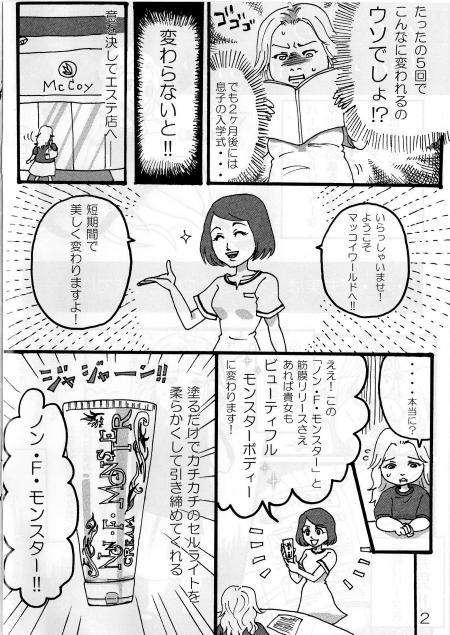 たったの5回で
こんなに変われるの
ウソでしょ!?
ゴゴゴ
でも2ヶ月後には
息子の入学式・・・
変わらないと!!
意を決してエステ店へ――
McCoy
いらっしゃいませ!
ようこそ
マッコイワールドへ!!
短期間で
美しく変わりますよ!
・・・・本当に?
ええ!この
「ノン・F・モンスター」と
筋膜リリースさえ
あれば貴女も
ビューティフル
モンスターボディー
に変わります!
塗るだけでカチカチのセルライトを
柔らかくして引き締めてくれる
ジャジャーン!!
NON-F-MONSTER
CREAM
ノン・F・モンスター!!
2